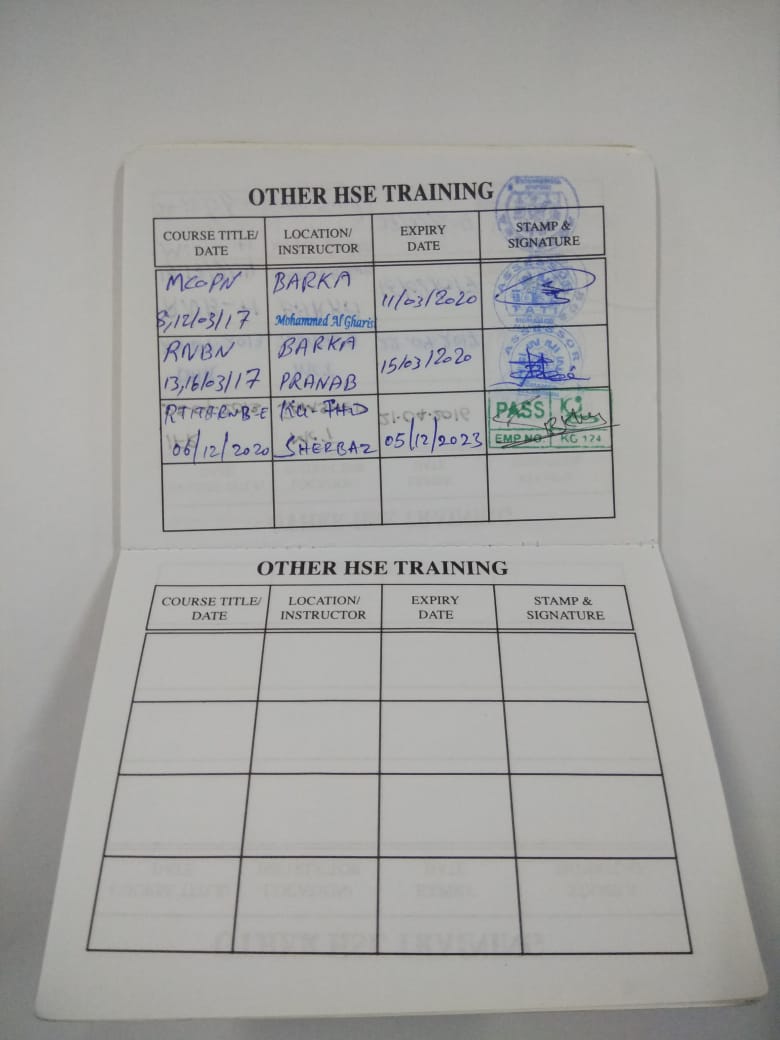 OTHER HSE TRAINING
COURSE TITLE/ DATE
LOCATION/ INSTRUCTOR
EXPIRY DATE
STAMP & SIGNATURE
MCOPN
8,12/03/17
BARKA
Mohammed Al Gharis
11/03/2020
ASSESSOR
TATI
RNBN
13,16/03/17
BARKA
PRANAB
15/03/2020
ASSESSOR
06/12/2020
SHERBAZ
21-04-2016
05/12/2023
PASS
EMP NO
KG 124
OTHER HSE TRAINING
COURSE TITLE/ DATE
LOCATION/ INSTRUCTOR
EXPIRY DATE
STAMP & SIGNATURE